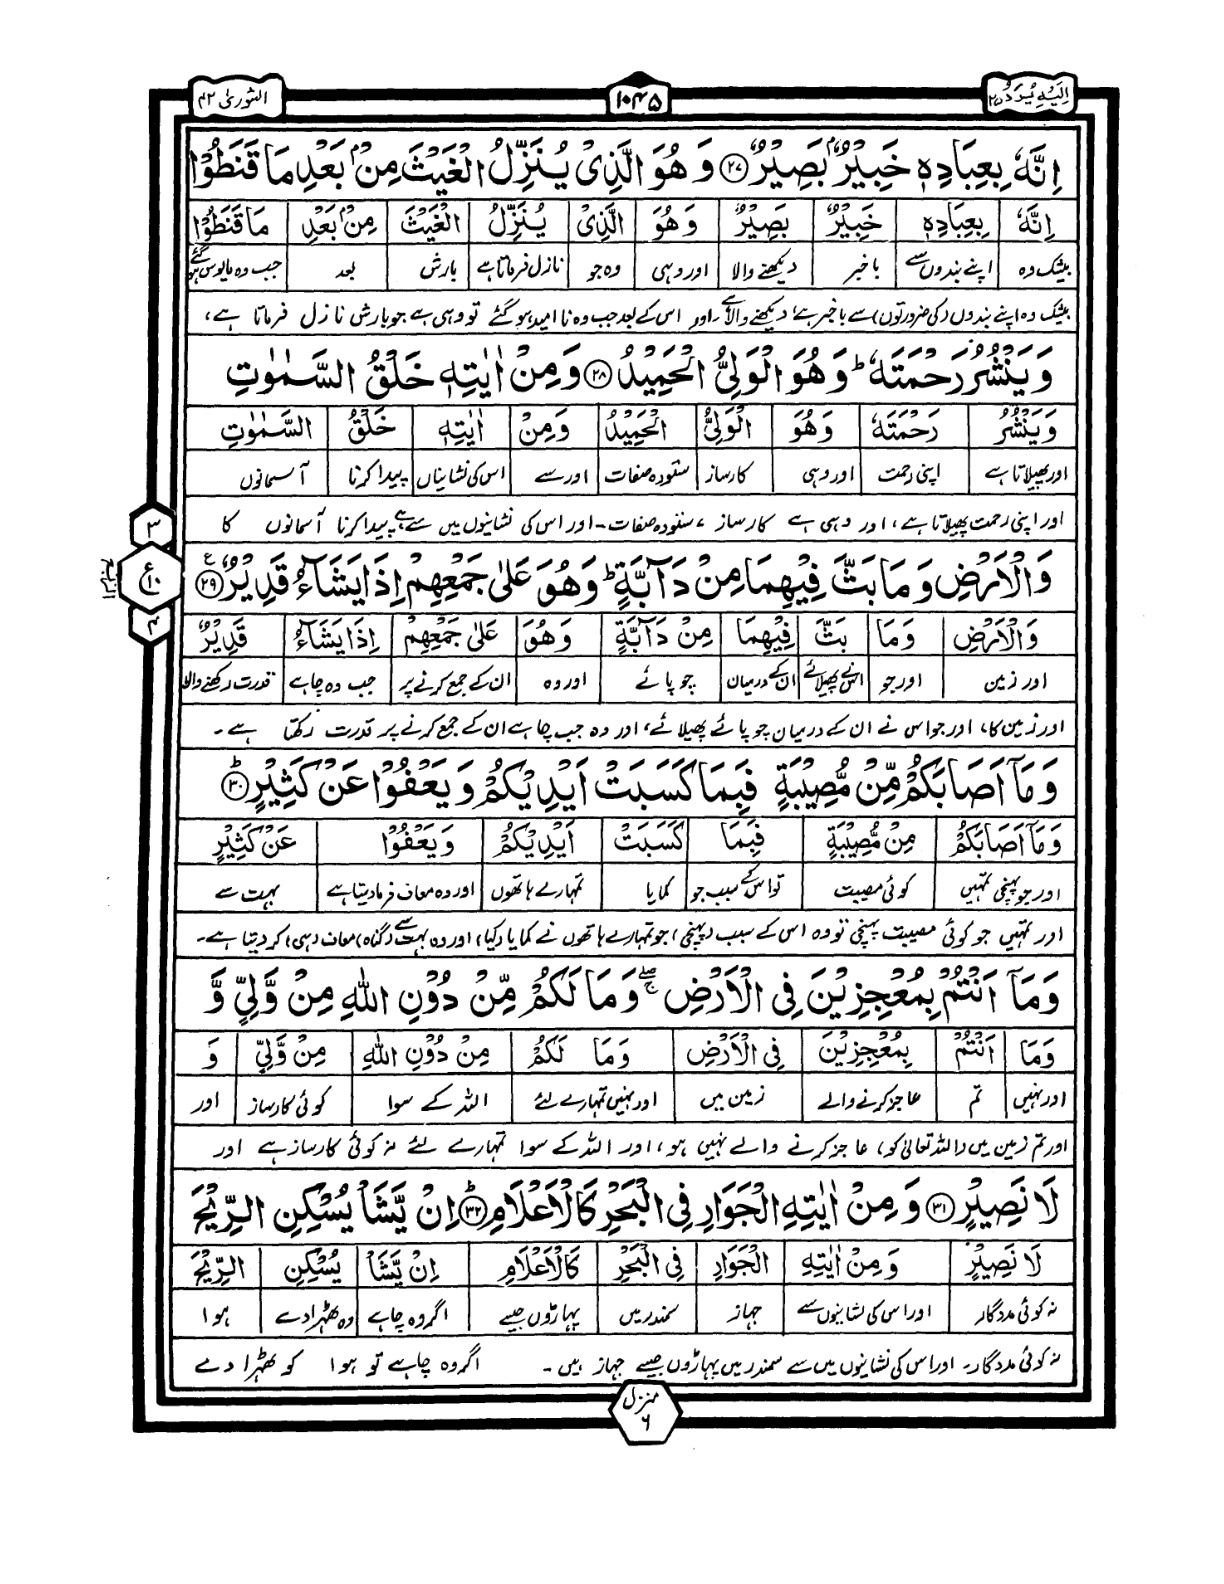 الشوریٰ ۴۲
۱۰۴۵
اِلَيْهِ يُرَدُّ ۲۵
اِنَّهٗ بِعِبَادِهٖ خَبِيْرٌۢ بَصِيْرٌ ﴿۲۷﴾ وَ هُوَ الَّذِىْ يُنَزِّلُ الْغَيْثَ مِنْۢ بَعْدِ مَا قَنَطُوْا
اِنَّهٗ بِعِبَادِهٖ خَبِيْرٌۢ بَصِيْرٌ وَ هُوَ الَّذِىْ يُنَزِّلُ الْغَيْثَ مِنْۢ بَعْدِ مَا قَنَطُوْا
بیشک وہ اپنے بندوں سے باخبر دیکھنے والا اور وہی وہ جو نازل فرماتا ہے بارش بعد جب وہ مایوس ہو گئے
بیشک وہ اپنے بندوں (کی ضرورتوں) سے باخبر ہے، دیکھنے والا ہے۔ اور اس کے بعد جب وہ نا امید ہو گئے تو وہی ہے جو بارش نازل فرماتا ہے،
وَ يَنْشُرُ رَحْمَتَهٗ ؕ وَ هُوَ الْوَلِىُّ الْحَمِيْدُ ﴿۲۸﴾ وَ مِنْ اٰيٰتِهٖ خَلْقُ السَّمٰوٰتِ
وَ يَنْشُرُ رَحْمَتَهٗ وَ هُوَ الْوَلِىُّ الْحَمِيْدُ وَ مِنْ اٰيٰتِهٖ خَلْقُ السَّمٰوٰتِ
اور پھیلاتا ہے اپنی رحمت اور وہی کارساز ستودہ صفات اور سے اس کی نشانیاں پیدا کرنا آسمانوں
اور اپنی رحمت پھیلاتا ہے، اور وہی ہے کارساز، ستودہ صفات۔ اور اس کی نشانیوں میں سے ہے پیدا کرنا آسمانوں کا
وَ الْاَرْضِ وَ مَا بَثَّ فِيْهِمَا مِنْ دَآبَّةٍ ؕ وَ هُوَ عَلٰى جَمْعِهِمْ اِذَا يَشَآءُ قَدِيْرٌ ﴿۲۹﴾ ع
وَ الْاَرْضِ وَ مَا بَثَّ فِيْهِمَا مِنْ دَآبَّةٍ وَ هُوَ عَلٰى جَمْعِهِمْ اِذَا يَشَآءُ قَدِيْرٌ
اور زمین اور جو اس نے پھیلائے ان کے درمیان چوپائے اور وہ ان کے جمع کرنے پر جب وہ چاہے قدرت رکھنے والا
اور زمین کا، اور جو اس نے ان کے درمیان چوپائے پھیلائے، اور وہ جب چاہے ان کے جمع کرنے پر قدرت رکھتا ہے۔
۳
ع ۱۰
۴
وَ مَاۤ اَصَابَكُمْ مِّنْ مُّصِيْبَةٍ فَبِمَا كَسَبَتْ اَيْدِيْكُمْ وَ يَعْفُوْا عَنْ كَثِيْرٍ ؕ ﴿۳۰﴾
وَ مَاۤ اَصَابَكُمْ مِنْ مُّصِيْبَةٍ فَبِمَا كَسَبَتْ اَيْدِيْكُمْ وَ يَعْفُوْا عَنْ كَثِيْرٍ
اور جو پہنچی تمہیں کوئی مصیبت تو اس کے سبب جو کمایا تمہارے ہاتھوں اور وہ معاف فرما دیتا ہے بہت سے
اور تمہیں جو کوئی مصیبت پہنچی تو وہ اس کے سبب (پہنچی) جو تمہارے ہاتھوں نے کمایا (کیا) اور وہ بہت سے (گناہ) معاف (ہی) کر دیتا ہے۔
وَ مَاۤ اَنْتُمْ بِمُعْجِزِيْنَ فِى الْاَرْضِ ۖۚ وَ مَا لَكُمْ مِّنْ دُوْنِ اللّٰهِ مِنْ وَّلِىٍّ وَّ
وَ مَا اَنْتُمْ بِمُعْجِزِيْنَ فِى الْاَرْضِ وَ مَا لَكُمْ مِنْ دُوْنِ اللّٰهِ مِنْ وَّلِىٍّ وَ
اور نہیں تم عاجز کرنے والے زمین میں اور نہیں تمہارے لئے اللہ کے سوا کوئی کارساز اور
اور تم زمین میں (اللہ تعالیٰ کو) عاجز کرنے والے نہیں ہو، اور اللہ کے سوا تمہارے لئے نہ کوئی کارساز ہے اور
لَا نَصِيْرٍ ﴿۳۱﴾ وَ مِنْ اٰيٰتِهِ الْجَوَارِ فِى الْبَحْرِ كَالْاَعْلَامِ ؕ ﴿۳۲﴾ اِنْ يَّشَاْ يُسْكِنِ الرِّيْحَ
لَا نَصِيْرٍ وَ مِنْ اٰيٰتِهِ الْجَوَارِ فِى الْبَحْرِ كَالْاَعْلَامِ اِنْ يَّشَاْ يُسْكِنِ الرِّيْحَ
نہ کوئی مددگار اور اس کی نشانیوں سے جہاز سمندر میں پہاڑوں جیسے اگر وہ چاہے وہ ٹھہرا دے ہوا
نہ کوئی مددگار۔ اور اس کی نشانیوں میں سے سمندر میں پہاڑوں جیسے جہاز ہیں۔ اگر وہ چاہے تو ہوا کو ٹھہرا دے
منزل ۶